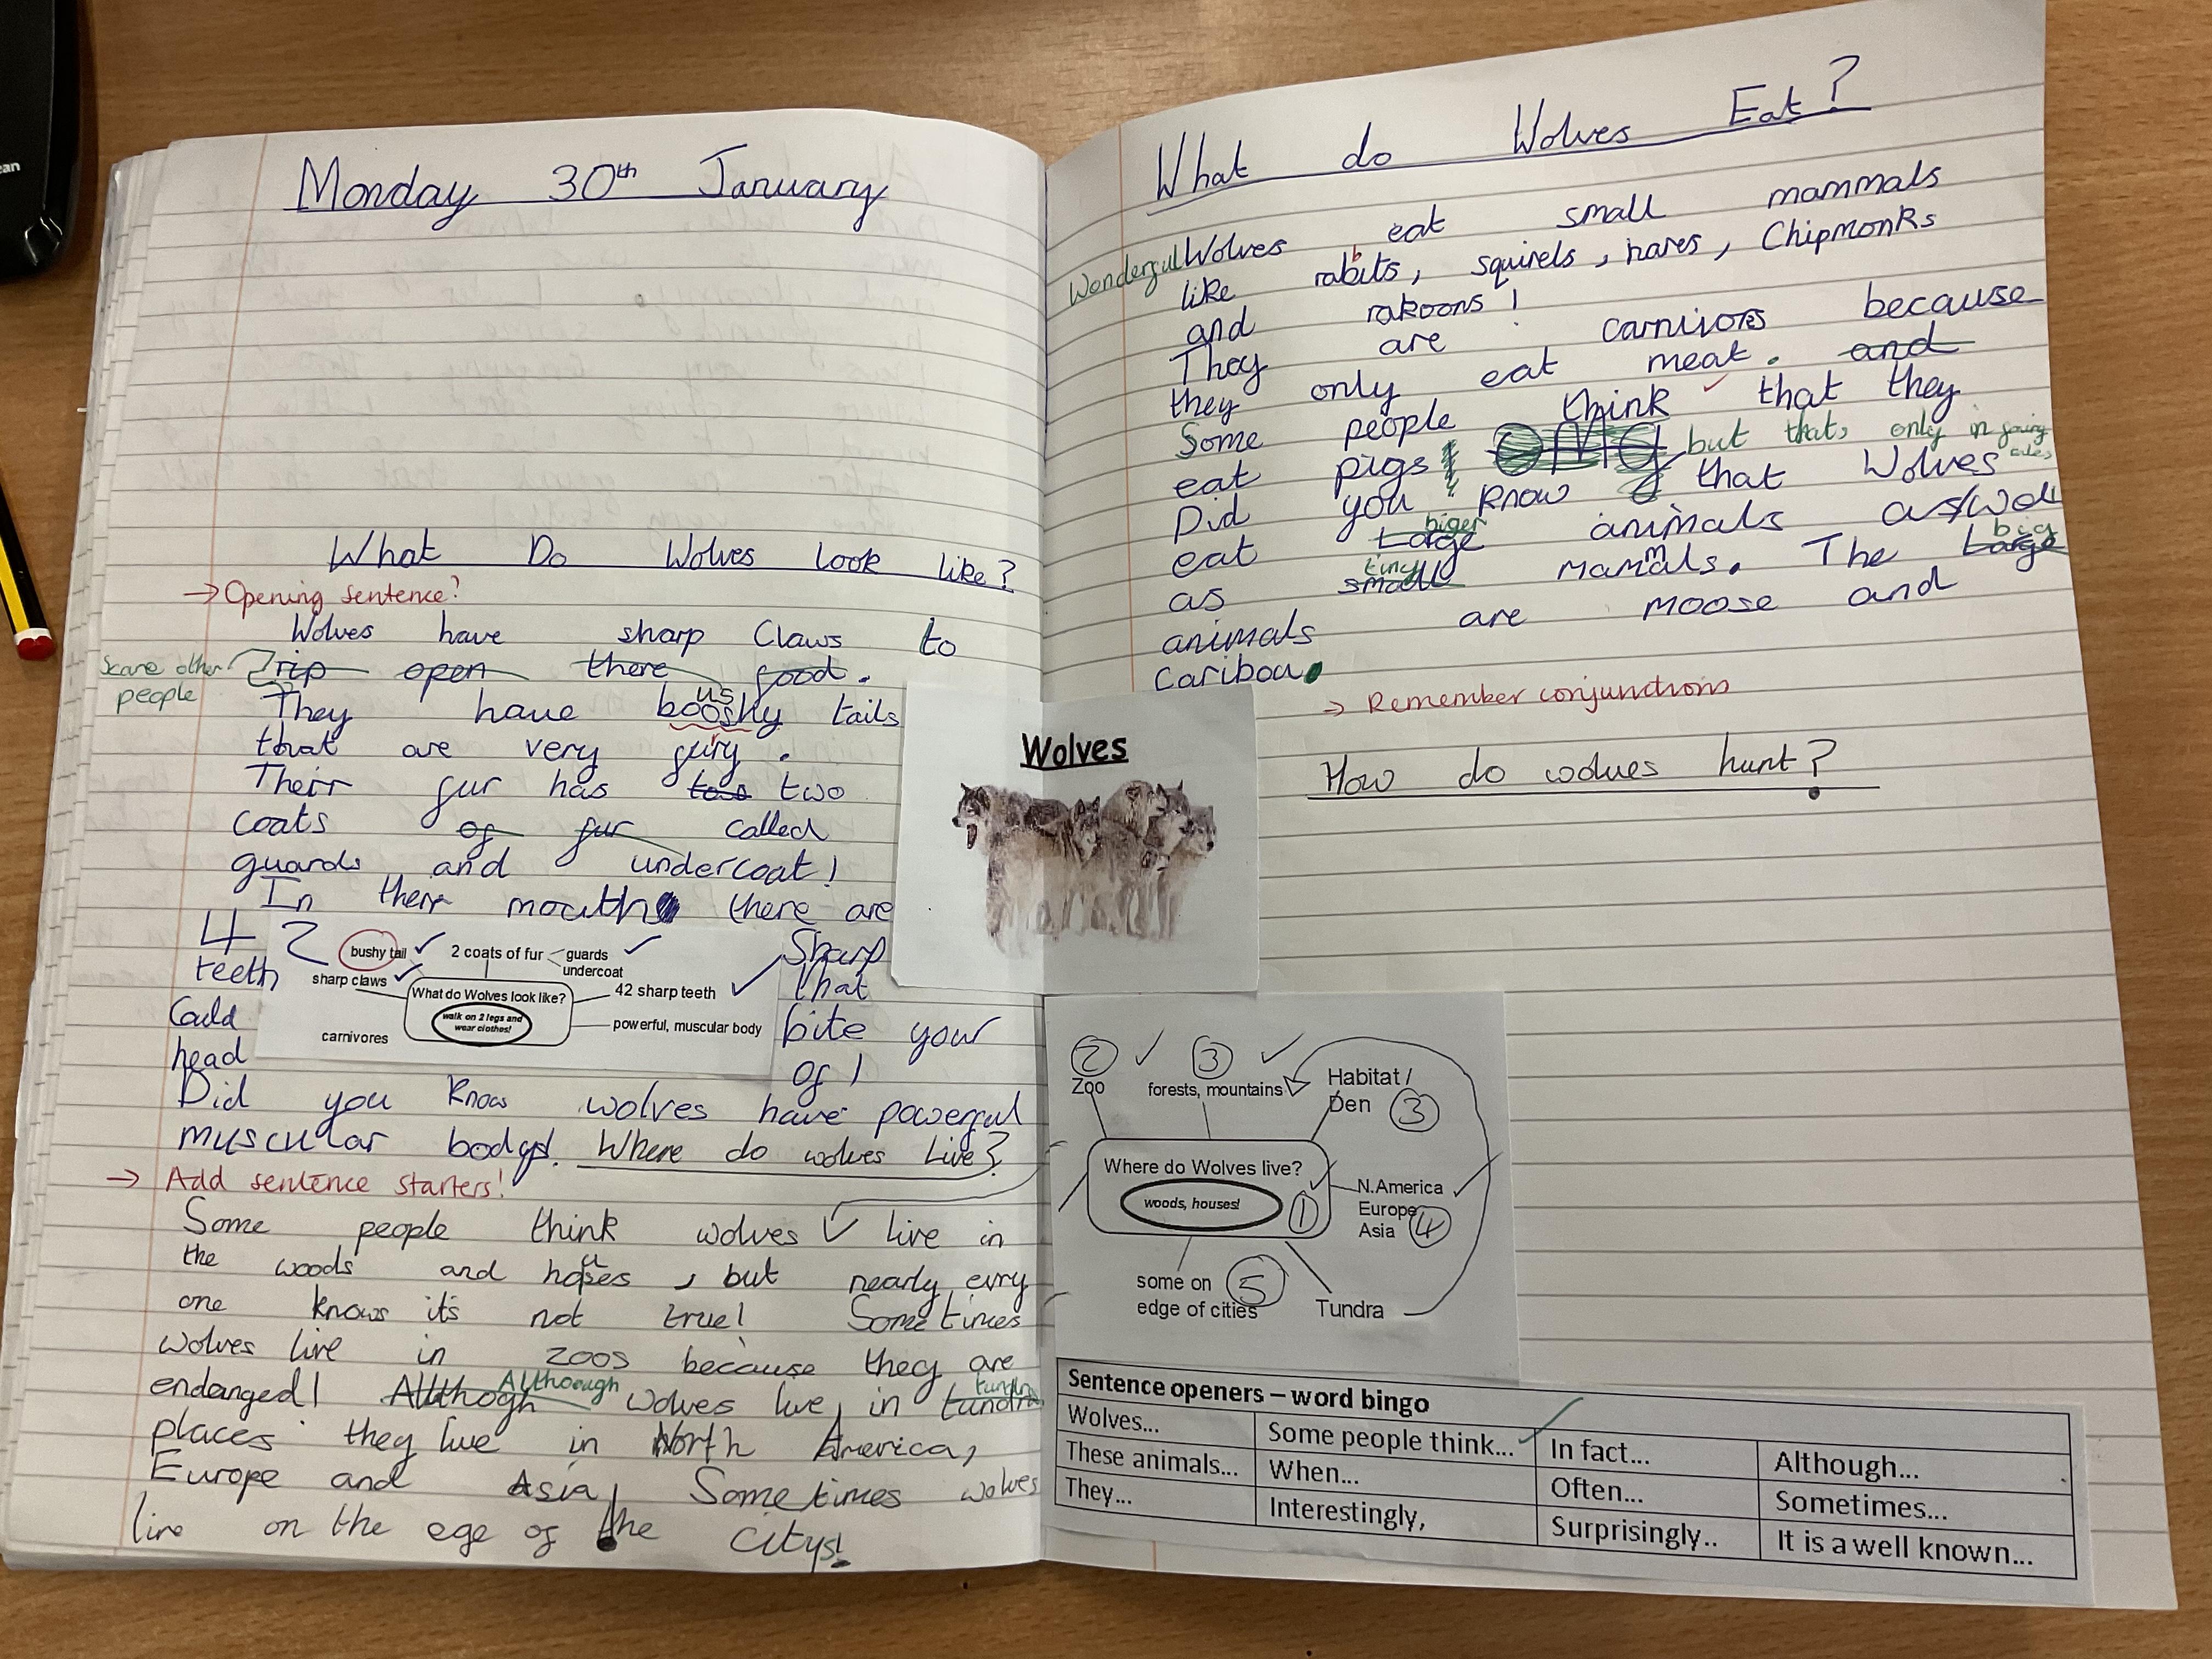 Monday 30th January
What Do Wolves look like?
→ Opening sentence?
Wolves have sharp Claws to
Scare other
people
rip open there food.
They have booshy tails
us
that are very furry.
Their fur has two
coats of fur called
guards and undercoat!
In their mouth there are
42 Sharp
teeth that
Could bite your
head of!
bushy tail
2 coats of fur
guards
undercoat
sharp claws
What do Wolves look like?
42 sharp teeth
walk on 2 legs and
wear clothes!
powerful, muscular body
carnivores
Did you know wolves have powerful
muscular bodys!. Where do wolves Live?
→ Add sentence starters!
Some people think wolves live in
the woods and hoses, but nearly evry
one knows it's not true! Sometimes
wolves live in zoos because they are
endanged! Allthogh Althoough wolves live in tundra
places they live in North America,
Europe and Asia! Sometimes wolves
live on the ege of the citys!
What do Wolves Eat?
Wonderful Wolves eat small mammals
like rabbits, squirels, hares, Chipmonks
and rakoons!
They are carnivores because
they only eat meat. and
Some people think that they
eat pigs OMG but thats only in fairy
tales
Did you know that Wolves
eat Large biger animals as/well
as small tiny mammals. The Large big
animals are moose and
caribou.
→ Remember conjunctions
How do wolves hunt?
Wolves
2
3
Zoo
forests, mountains
Habitat /
Den
3
Where do Wolves live?
woods, houses!
1
N.America
Europe
Asia
4
some on
edge of cities
5
Tundra
Sentence openers – word bingo
Wolves... Some people think... In fact... Although...
These animals... When... Often... Sometimes...
They... Interestingly, Surprisingly.. It is a well known...